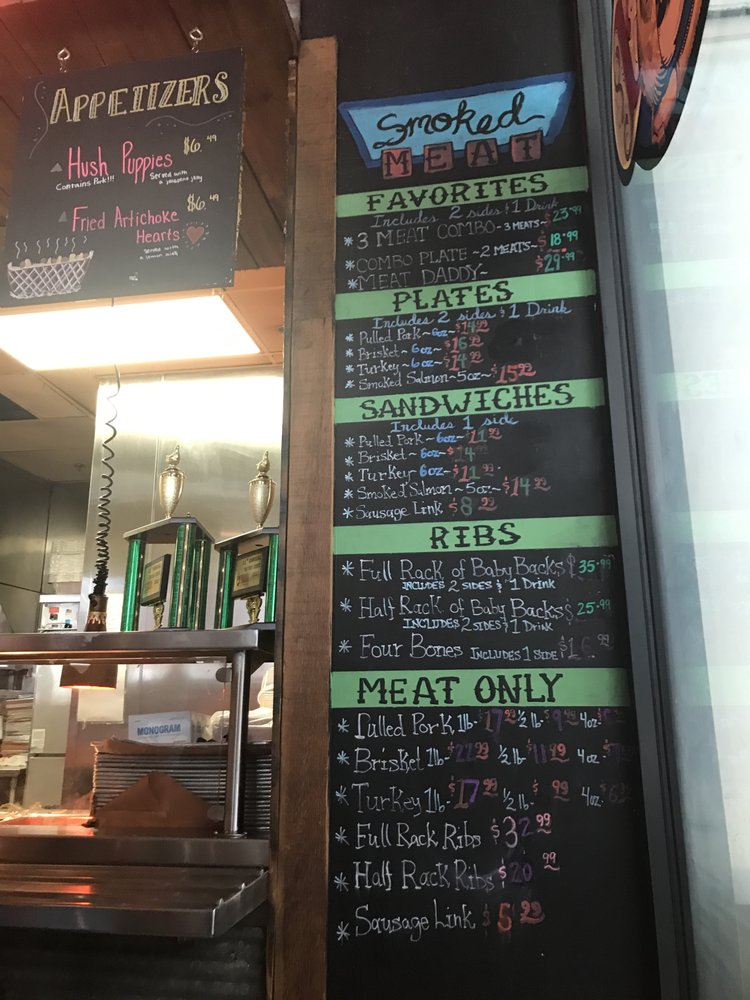 APPETIZERS
Hush Puppies $6.49
Contains Pork!!! Served with
a jalapeno jelly
Fried Artichoke $6.49
Hearts
Served with
a lemon aioli
Smoked
MEAT
FAVORITES
Includes 2 sides & 1 Drink
* 3 MEAT COMBO - 3 MEATS~ $23.99
* COMBO PLATE ~ 2 MEATS~ $18.99
* MEAT DADDY~ $29.99
PLATES
Includes 2 sides & 1 Drink
* Pulled Pork ~ 6oz~ $14.99
* Brisket ~ 6oz~ $16.99
* Turkey ~ 6oz~ $14.99
* Smoked Salmon ~ 5oz~ $15.99
SANDWICHES
Includes 1 side
* Pulled Pork ~ 6oz~ $11.99
* Brisket ~ 6oz~ $14.99
* Turkey 6oz~ $11.99
* Smoked Salmon ~ 5oz~ $14.99
* Sausage Link ~ $8.99
RIBS
* Full Rack of Baby Backs $35.99
INCLUDES 2 SIDES & 1 Drink
* Half Rack of Baby Backs $25.99
INCLUDES 2 SIDES & 1 Drink
* Four Bones INCLUDES 1 SIDE $16.99
MEAT ONLY
* Pulled Pork 1lb- $17.99 ½ lb- $9.99 4oz-
* Brisket 1lb- ½ lb- $11.99 4oz-
* Turkey 1lb- $17.99 ½ lb- 4oz-
* Full Rack Ribs $32.99
* Half Rack Ribs $20.99
* Sausage Link $5.99
MONOGRAM